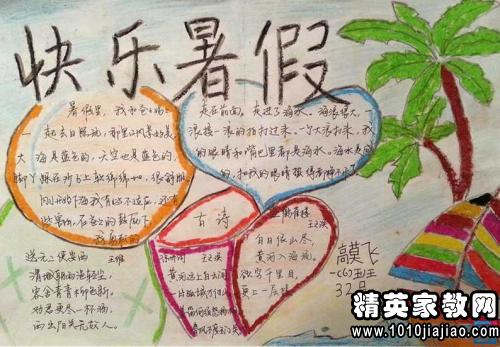 快乐暑假
暑假里，我和爸爸妈妈
一起去日照玩，那里的风景好美
大海是蓝色的，天空也是蓝色的，
脚丫踩在沙子上软绵绵的，很舒服
走在前面，走进了海水，海浪很大，
一浪接一浪的拍打过来，一个大浪打来，我
的眼睛和嘴巴里都是海水，海水是咸
古诗
送元二使安西
王维
渭城朝雨浥轻尘，
客舍青青柳色新。
劝君更尽一杯酒，
西出阳关无故人。
凉州词
王之涣
黄河远上白云间
一片孤城万仞山
登鹳雀楼
王之涣
白日依山尽，
黄河入海流。
欲穷千里目，
更上一层楼
高莫飞
一(6)班
32号
精英家教网
www.1010jiajiao.com